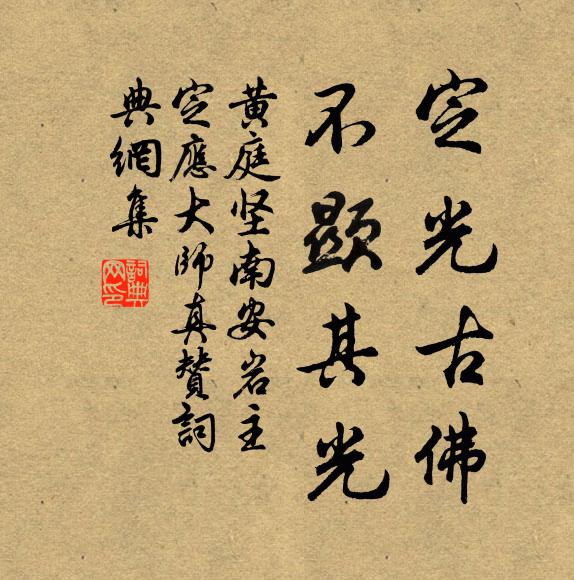 定光古佛
不顯其光
黃庭坚南安岩主
定應大師真赞詞
典網集
詞典网印